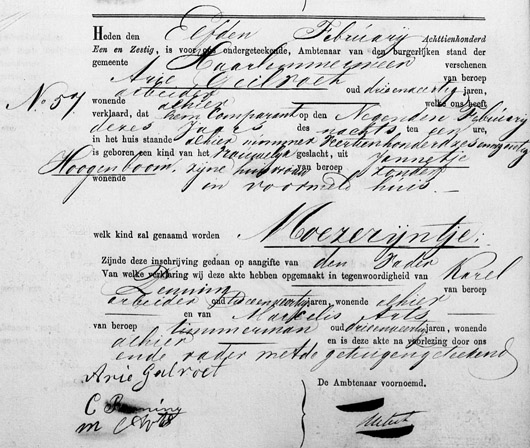 Heden den Elfden Februarij Achttienhonderd
Een en Zestig, is voor ons ondergeteekende, Ambtenaar van den burgerlijken stand der
gemeente Haarlemmermeer verschenen
Arie van beroep
arbeider oud drieendertig jaren,
No. 57
wonende alhier welke ons heeft
verklaard, dat hem Comparant op den Negenden Februarij
dezes Jaars des nachts ten een ure,
in het huis staande alhier nummer
is geboren een kind van het Vrouwelijk geslacht, uit Jannetje
Hoogenboom, zijne huisvrouw van beroep zonder
wonende en voormeld huis.
welk kind zal genaamd worden Moezerijntje.
Zijnde deze inschrijving gedaan op aangifte van den Vader
Van welke verklaring wij deze akte hebben opgemaakt in tegenwoordigheid van Karel
Penning van beroep
arbeider oud jaren, wonende alhier
en van Markelis Arts
van beroep timmerman oud jaren, wonende
alhier en is deze akte na voorlezing door ons
ende vader met de getuigen geteekend
Arie Galroet
De Ambtenaar voornoemd.
C Penning
M Arts